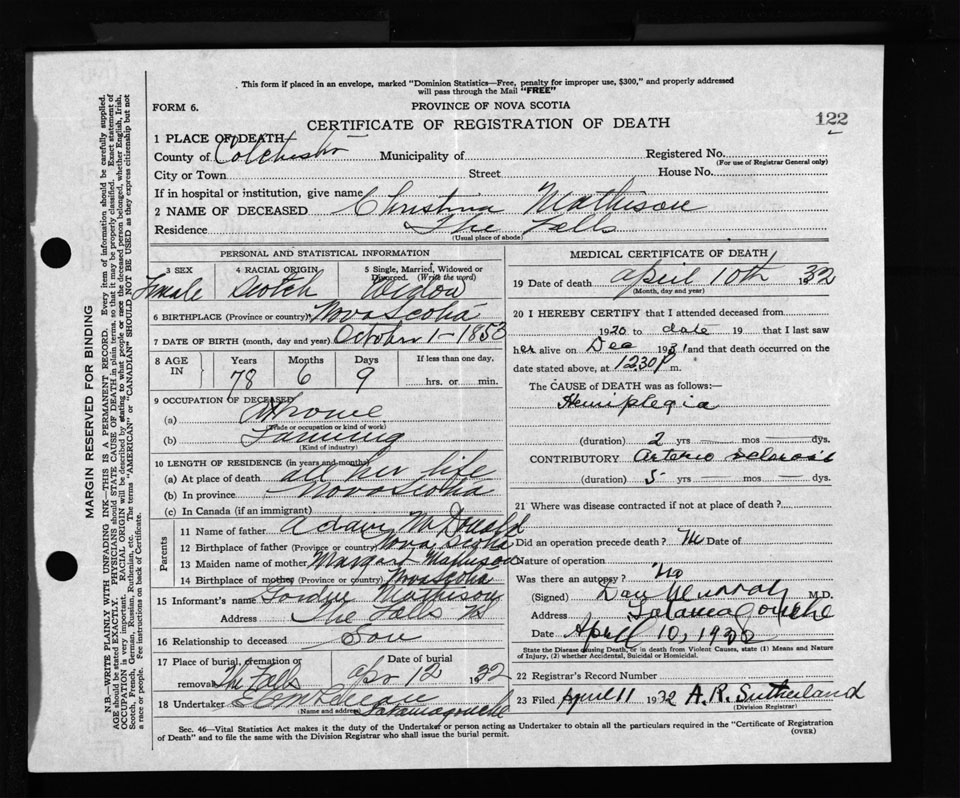 This form if placed in an envelope, marked "Dominion Statistics—Free, penalty for improper use, $300," and properly addressed
will pass through the Mail "FREE"
FORM 6.
PROVINCE OF NOVA SCOTIA
CERTIFICATE OF REGISTRATION OF DEATH
122
1 PLACE OF DEATH
County of Colchester Municipality of Registered No.
(For use of Registrar General only)
City or Town Street House No.
If in hospital or institution, give name
2 NAME OF DECEASED Christina Mathison
Residence The Falls
(Usual place of abode)
PERSONAL AND STATISTICAL INFORMATION
3 SEX 4 RACIAL ORIGIN 5 Single, Married, Widowed or Divorced. (Write the word)
Female Scotch Widow
6 BIRTHPLACE (Province or country) Nova Scotia
7 DATE OF BIRTH (month, day and year) October 1 - 1853
8 AGE IN Years Months Days If less than one day,
78 6 9 hrs. or min.
9 OCCUPATION OF DECEASED
(a) At home
(Trade or occupation or kind of work)
(b) Farming
(Kind of industry)
10 LENGTH OF RESIDENCE (in years and months)
(a) At place of death all her life
(b) In province Nova Scotia
(c) In Canada (if an immigrant)
Parents
11 Name of father Adam McDonald
12 Birthplace of father (Province or country) Nova Scotia
13 Maiden name of mother Margaret Mathison
14 Birthplace of mother (Province or country) Nova Scotia
15 Informant's name Gordon Mathison
Address The Falls NS
16 Relationship to deceased Son
17 Place of burial, cremation or removal Date of burial
The Falls Apr 12 1932
18 Undertaker
(Name and address) Tatamagouche
MEDICAL CERTIFICATE OF DEATH
19 Date of death April 10th 1932
(Month, day and year)
20 I HEREBY CERTIFY that I attended deceased from
1920 to date 19 that I last saw
her alive on Dec 1931 and that death occurred on the
date stated above, at 1230 P m.
The CAUSE OF DEATH was as follows:—
Hemiplegia
(duration) 2 yrs mos dys.
CONTRIBUTORY Arterio sclerosis
(duration) 5 yrs. mos. dys.
21 Where was disease contracted if not at place of death?
Did an operation precede death? No Date of
Nature of operation
Was there an autopsy? No
(Signed) Dan Murray M.D.
Address Tatamagouche
Date April 10, 1932
State the Disease causing Death, or in death from Violent Causes, state (1) Means and Nature of Injury, (2) whether Accidental, Suicidal or Homicidal.
22 Registrar's Record Number
23 Filed April 11 1932 A. R. Sutherland
(Division Registrar)
Sec. 46—Vital Statistics Act makes it the duty of the Undertaker or person acting as Undertaker to obtain all the particulars required in the "Certificate of Registration
of Death" and to file the same with the Division Registrar who shall issue the burial permit.
(OVER)
MARGIN RESERVED FOR BINDING
N.B.—WRITE PLAINLY WITH UNFADING INK—THIS IS A PERMANENT RECORD. Every item of information should be carefully supplied.
AGE should be stated EXACTLY. PHYSICIANS should STATE CAUSE OF DEATH in plain terms, so that it may be properly classified. Exact statement of
OCCUPATION is very important. RACIAL ORIGIN will be described by stating to what people or race the deceased person belonged, whether English, Irish,
Scotch, French, German, Russian, Ruthenian, etc. The terms "AMERICAN" or "CANADIAN" SHOULD NOT BE USED as they express citizenship but not
a race or people. See instructions on back of Certificate.